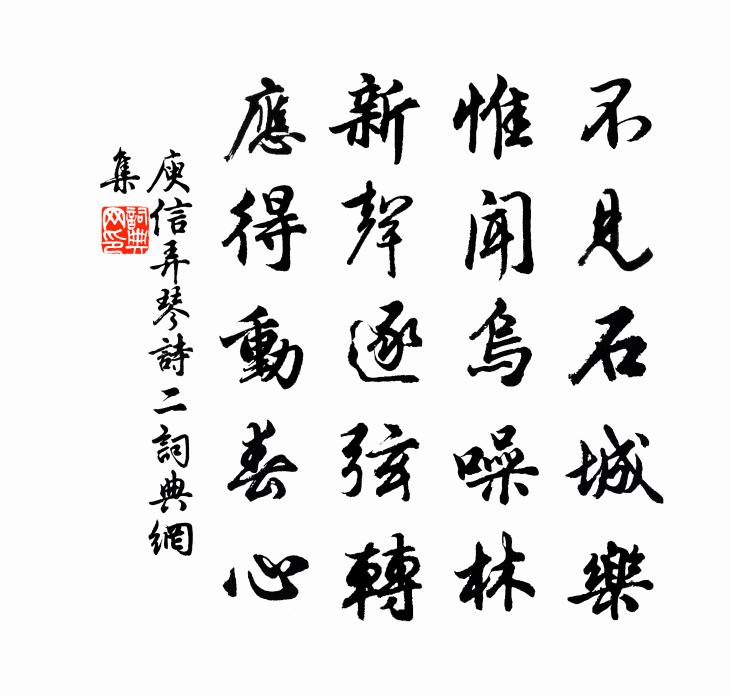 不見石城樂
惟聞烏噪林
新聲逐弦轉
應得動春心
庾信弄琴詩二詞典網
集
詞典
网印